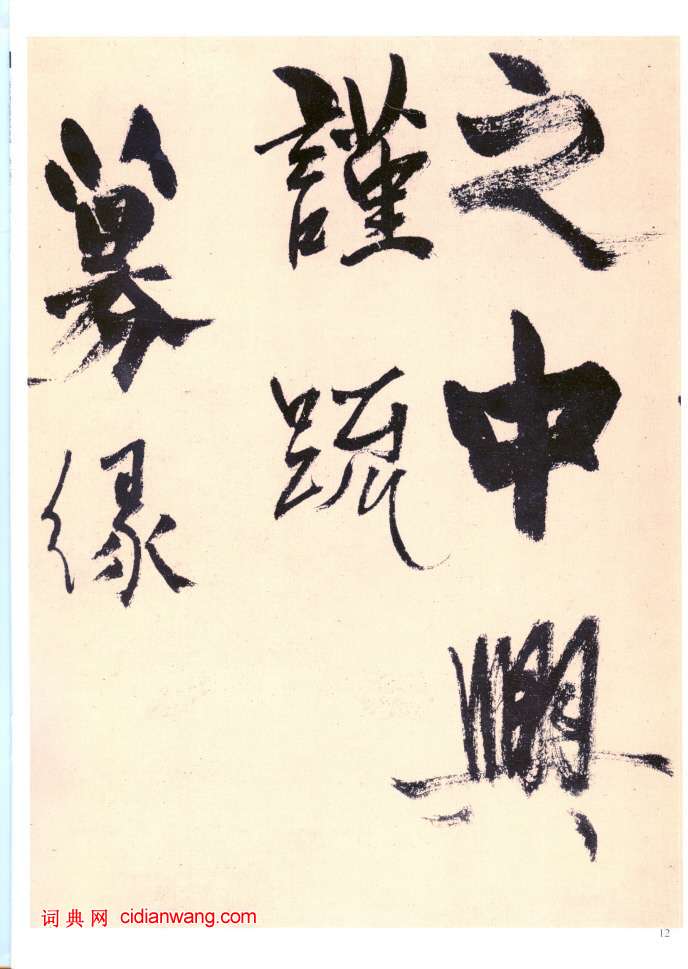 之中興
謹疏
募缘
词典网 cidianwang.com
12